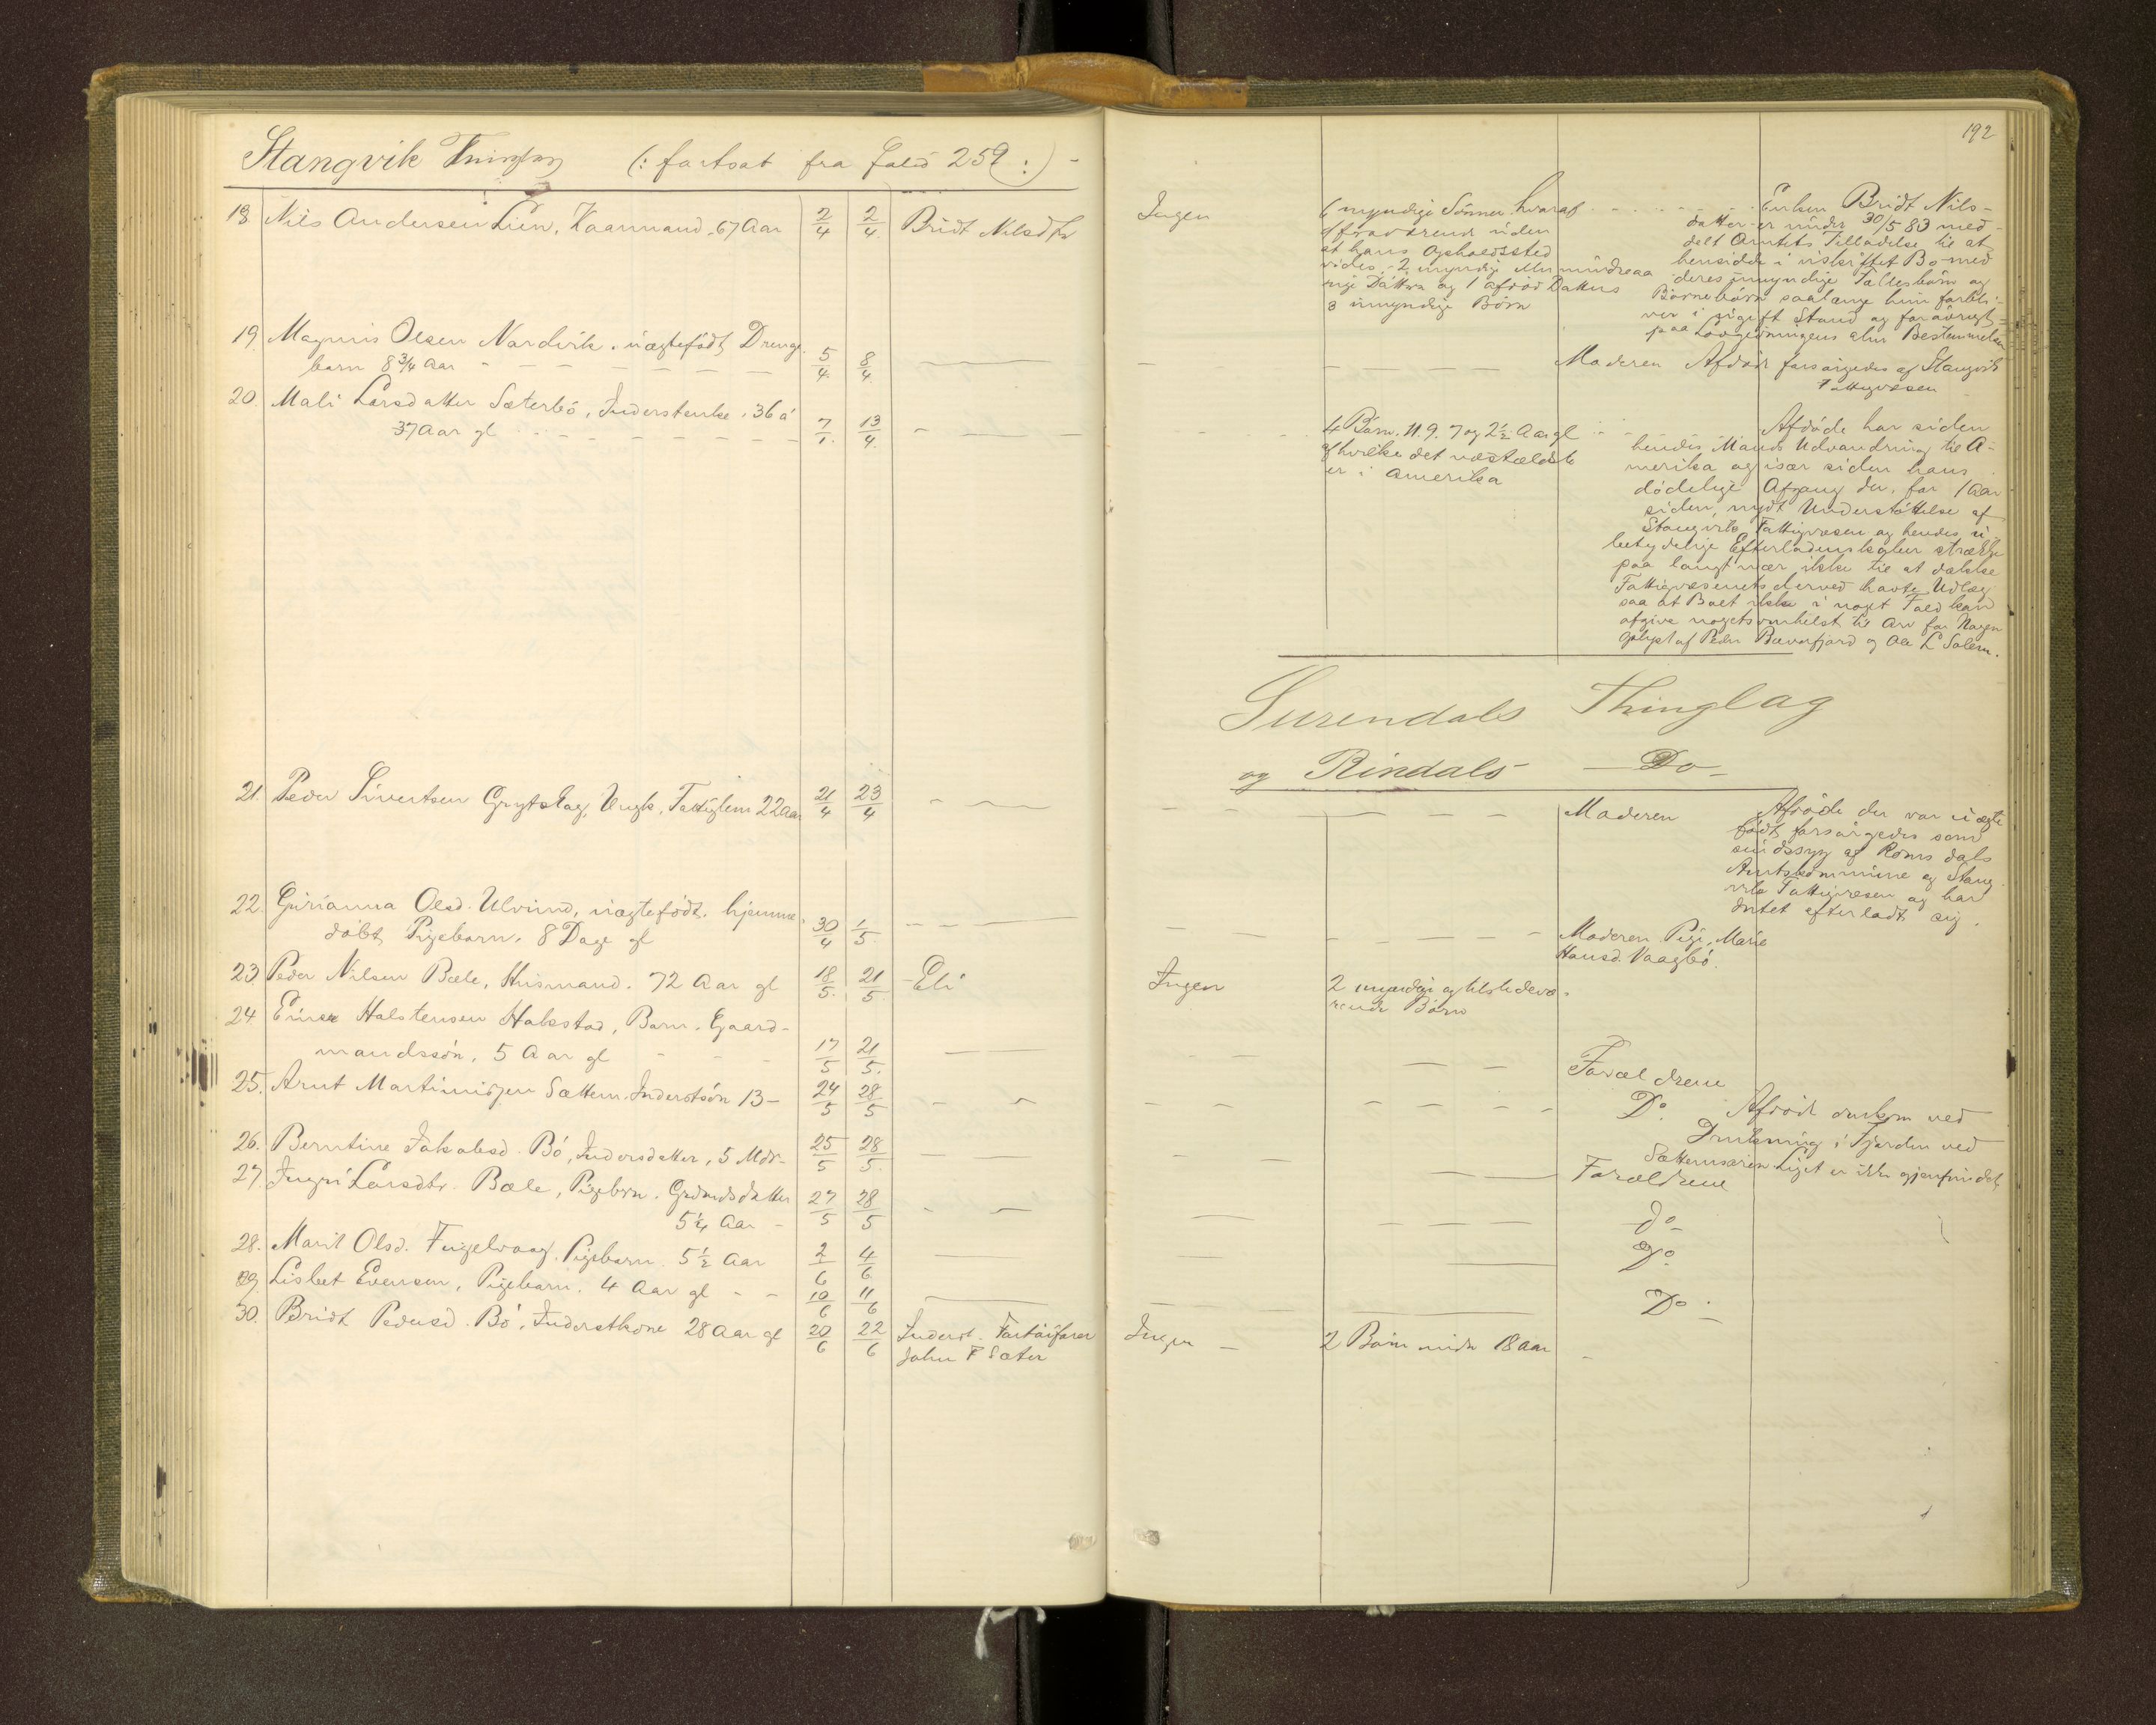 192
Stangvik Thinglag (: fortsat fra Folio 259 :) -
18. Nils Andersen Lien, Kaarmand, 67 Aar 2/4 2/4 Bridt Nilsdtr Ingen
6 myndige Sønner hvoraf
1 fraværende uden
at hans Opholdssted
vides, 2 myndige eller mindreaa
rige Døttre og 1 afdød Datters
3 umyndige Børn
Enken Bridt Nils-
datter er under 30/5 83 med-
delt Amtets Tilladelse til at
hensidde i uskiftet Bo med
deres umyndige Fællesbørn og
Børnebørn saalænge hun forbli-
ver i ugift Stand og forøvrigt
paa Lovgivningens alm Bestemmelser
19. Magnus Olsen Nordvik, uægtefødt Drenge-
barn 8 3/4 Aar 5/4 8/4 Moderen Afdøde forsørgedes af Stangvik
Fattigvæsen
20. Mali Larsdatter Sæterbø, Inderstenke, 36 à
37 Aar gl 7/1 13/4
4 Børn, 11. 9. 7 og 2 1/2 Aar gl
af hvilke det næstældste
er i Amerika
Afdøde har siden
hendes Mands Udvandring til A-
merika og især siden hans
dødelige Afgang der, for 1 Aar
siden, nydt Understøttelse af
Stangvik Fattigvæsen og hendes u-
betydelige Efterladenskaber strække
paa langt nær ikke til at dække
Fattigvæsenets derved havte Udlæg
saa at Boet ikke i noget Fald kan
afgive nogetsomhelst til Arv for Nogen
Oplyst af Peder Bæverfjord og Ole L Solem.
Surendals Thinglag
og Rindals - Do -
21. Peder Sivertsen Grytskog, Ungk, Fattiglem 22 Aar 21/4 23/4 Moderen
Afdøde der var uægte
født, forsørgedes som
sindssyg af Romsdals
Amtskommune og Stang-
vik Fattigvæsen og har
Intet efterladt sig.
22. Gurianna Olsd. Ulvund, uægtefødt, hjemme-
døbt Pigebarn, 8 Dage gl 30/4 1/5 Moderen Pige Marie
Hansd. Vaagbø.
23. Peder Nilsen Bæle, Husmand. 72 Aar gl 18/5 21/5 Eli Ingen 2 myndige og tilstedevæ-
rende Børn
24. Einar Halstensen Halsstad, Barn. Gaard-
mandssøn, 5 Aar gl 17/5 21/5 Forældrene
25. Arnt Martinusen Sættem, Inderstsøn 13 - 24/5 28/5 Do. Afdød omkom ved
Drukning i Fjorden ved
Sættemsøren. Liget er ikke gjenfundet
26. Berntine Jakobsd. Bø, Indersdatter, 5 Mdr- 25/5 28/5 Forældrene
27. Ingri Larsdtr. Bæle, Pigebrn. Grdmdsdatter
5 1/4 Aar - 27/5 28/5 do
28. Marit Olsd. Fugelvaag. Pigebarn. 5 1/2 Aar 2/6 4/6 Do
29. Lisbet Evensen, Pigebarn. 4 Aar gl - - 10/6 11/6 Do.
30. Bridt Pedersd. Bø, Inderstkone 28 Aar gl 20/6 22/6 Inderst
John F Sæter Ingen - 2 Børn under 18 Aar -